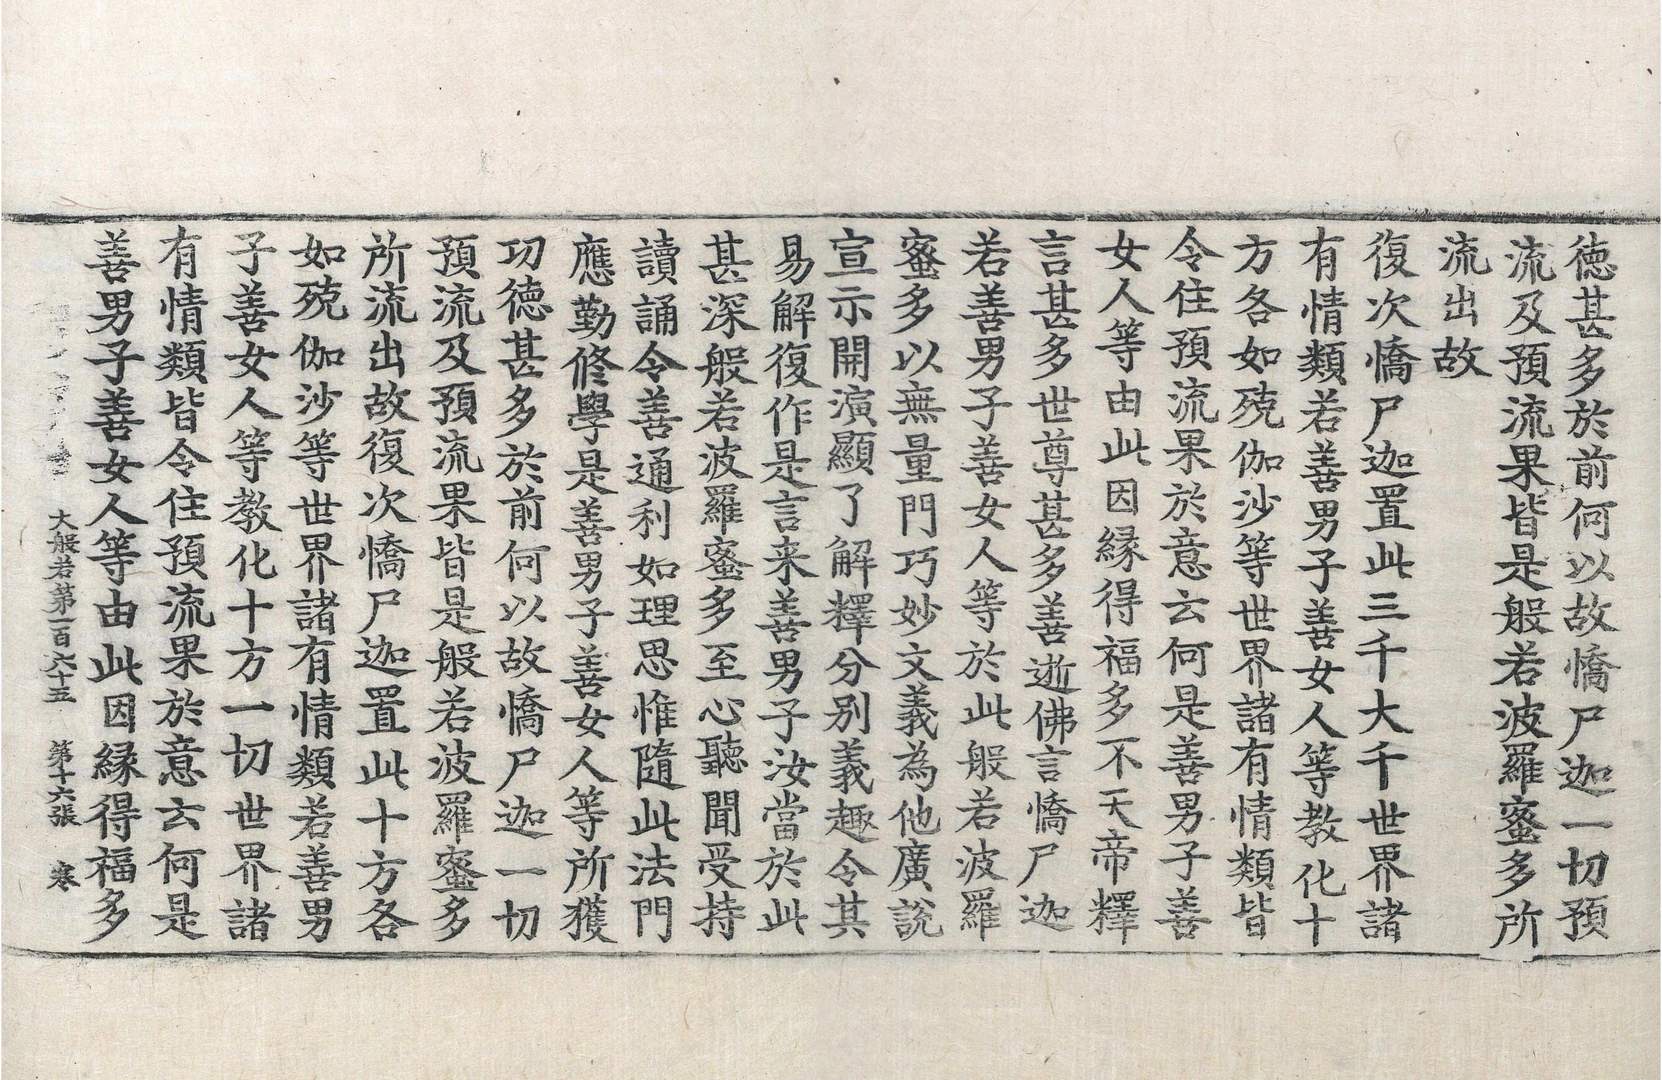 德甚多於前何以故憍尸迦一切預
流及預流果皆是般若波羅蜜多所
流出故
復次憍尸迦置此三千大千世界諸
有情類若善男子善女人等教化十
方各如殑伽沙等世界諸有情類皆
令住預流果於意云何是善男子善
女人等由此因緣得福多不天帝釋
言甚多世尊甚多善逝佛言憍尸迦
若善男子善女人等於此般若波羅
蜜多以無量門巧妙文義為他廣說
宣示開演顯了解釋分別義趣令其
易解復作是言来善男子汝當於此
甚深般若波羅蜜多至心聽聞受持
讀誦令善通利如理思惟隨此法門
應勤修學是善男子善女人等所獲
功德甚多於前何以故憍尸迦一切
預流及預流果皆是般若波羅蜜多
所流出故復次憍尸迦置此十方各
如殑伽沙等世界諸有情類若善男
子善女人等教化十方一切世界諸
有情類皆令住預流果於意云何是
善男子善女人等由此因緣得福多
大般若第一百六十五 第十六張 寒